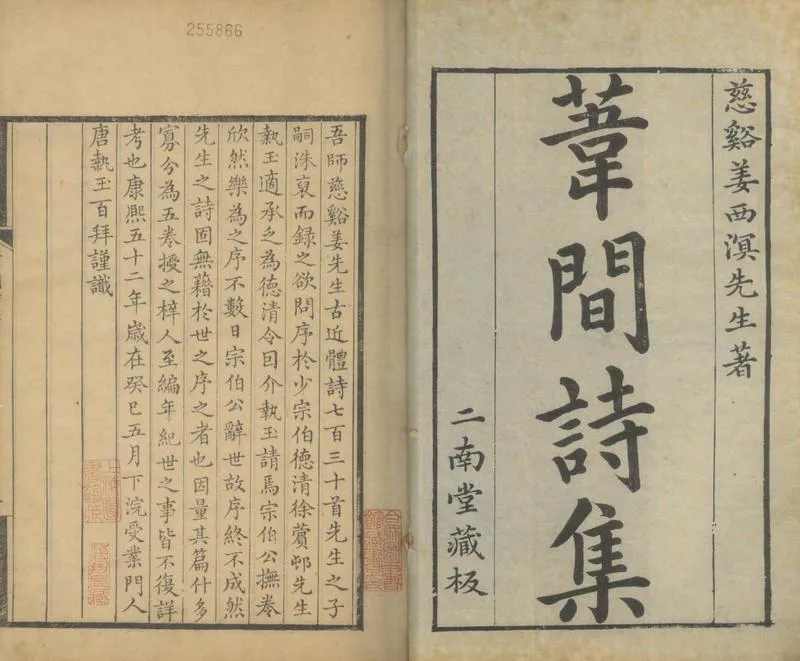 慈谿姜西溟先生著
葦間詩集
二南堂藏板
255866
吾師慈谿姜先生古近體詩七百三十首先生之子
嗣洙裒而録之欲問序於少宗伯德清徐蘋邨先生
執玉適承乏為德清令囙介執玉請焉宗伯公撫卷
欣然樂為之序不數日宗伯公辭世故序終不成然
先生之詩固無藉於世之序之者也因量其篇什多
寡分為五卷授之梓人至編年紀世之事皆不復詳
考也康熙五十二年歲在癸巳五月下浣受業門人
唐執玉百拜謹識